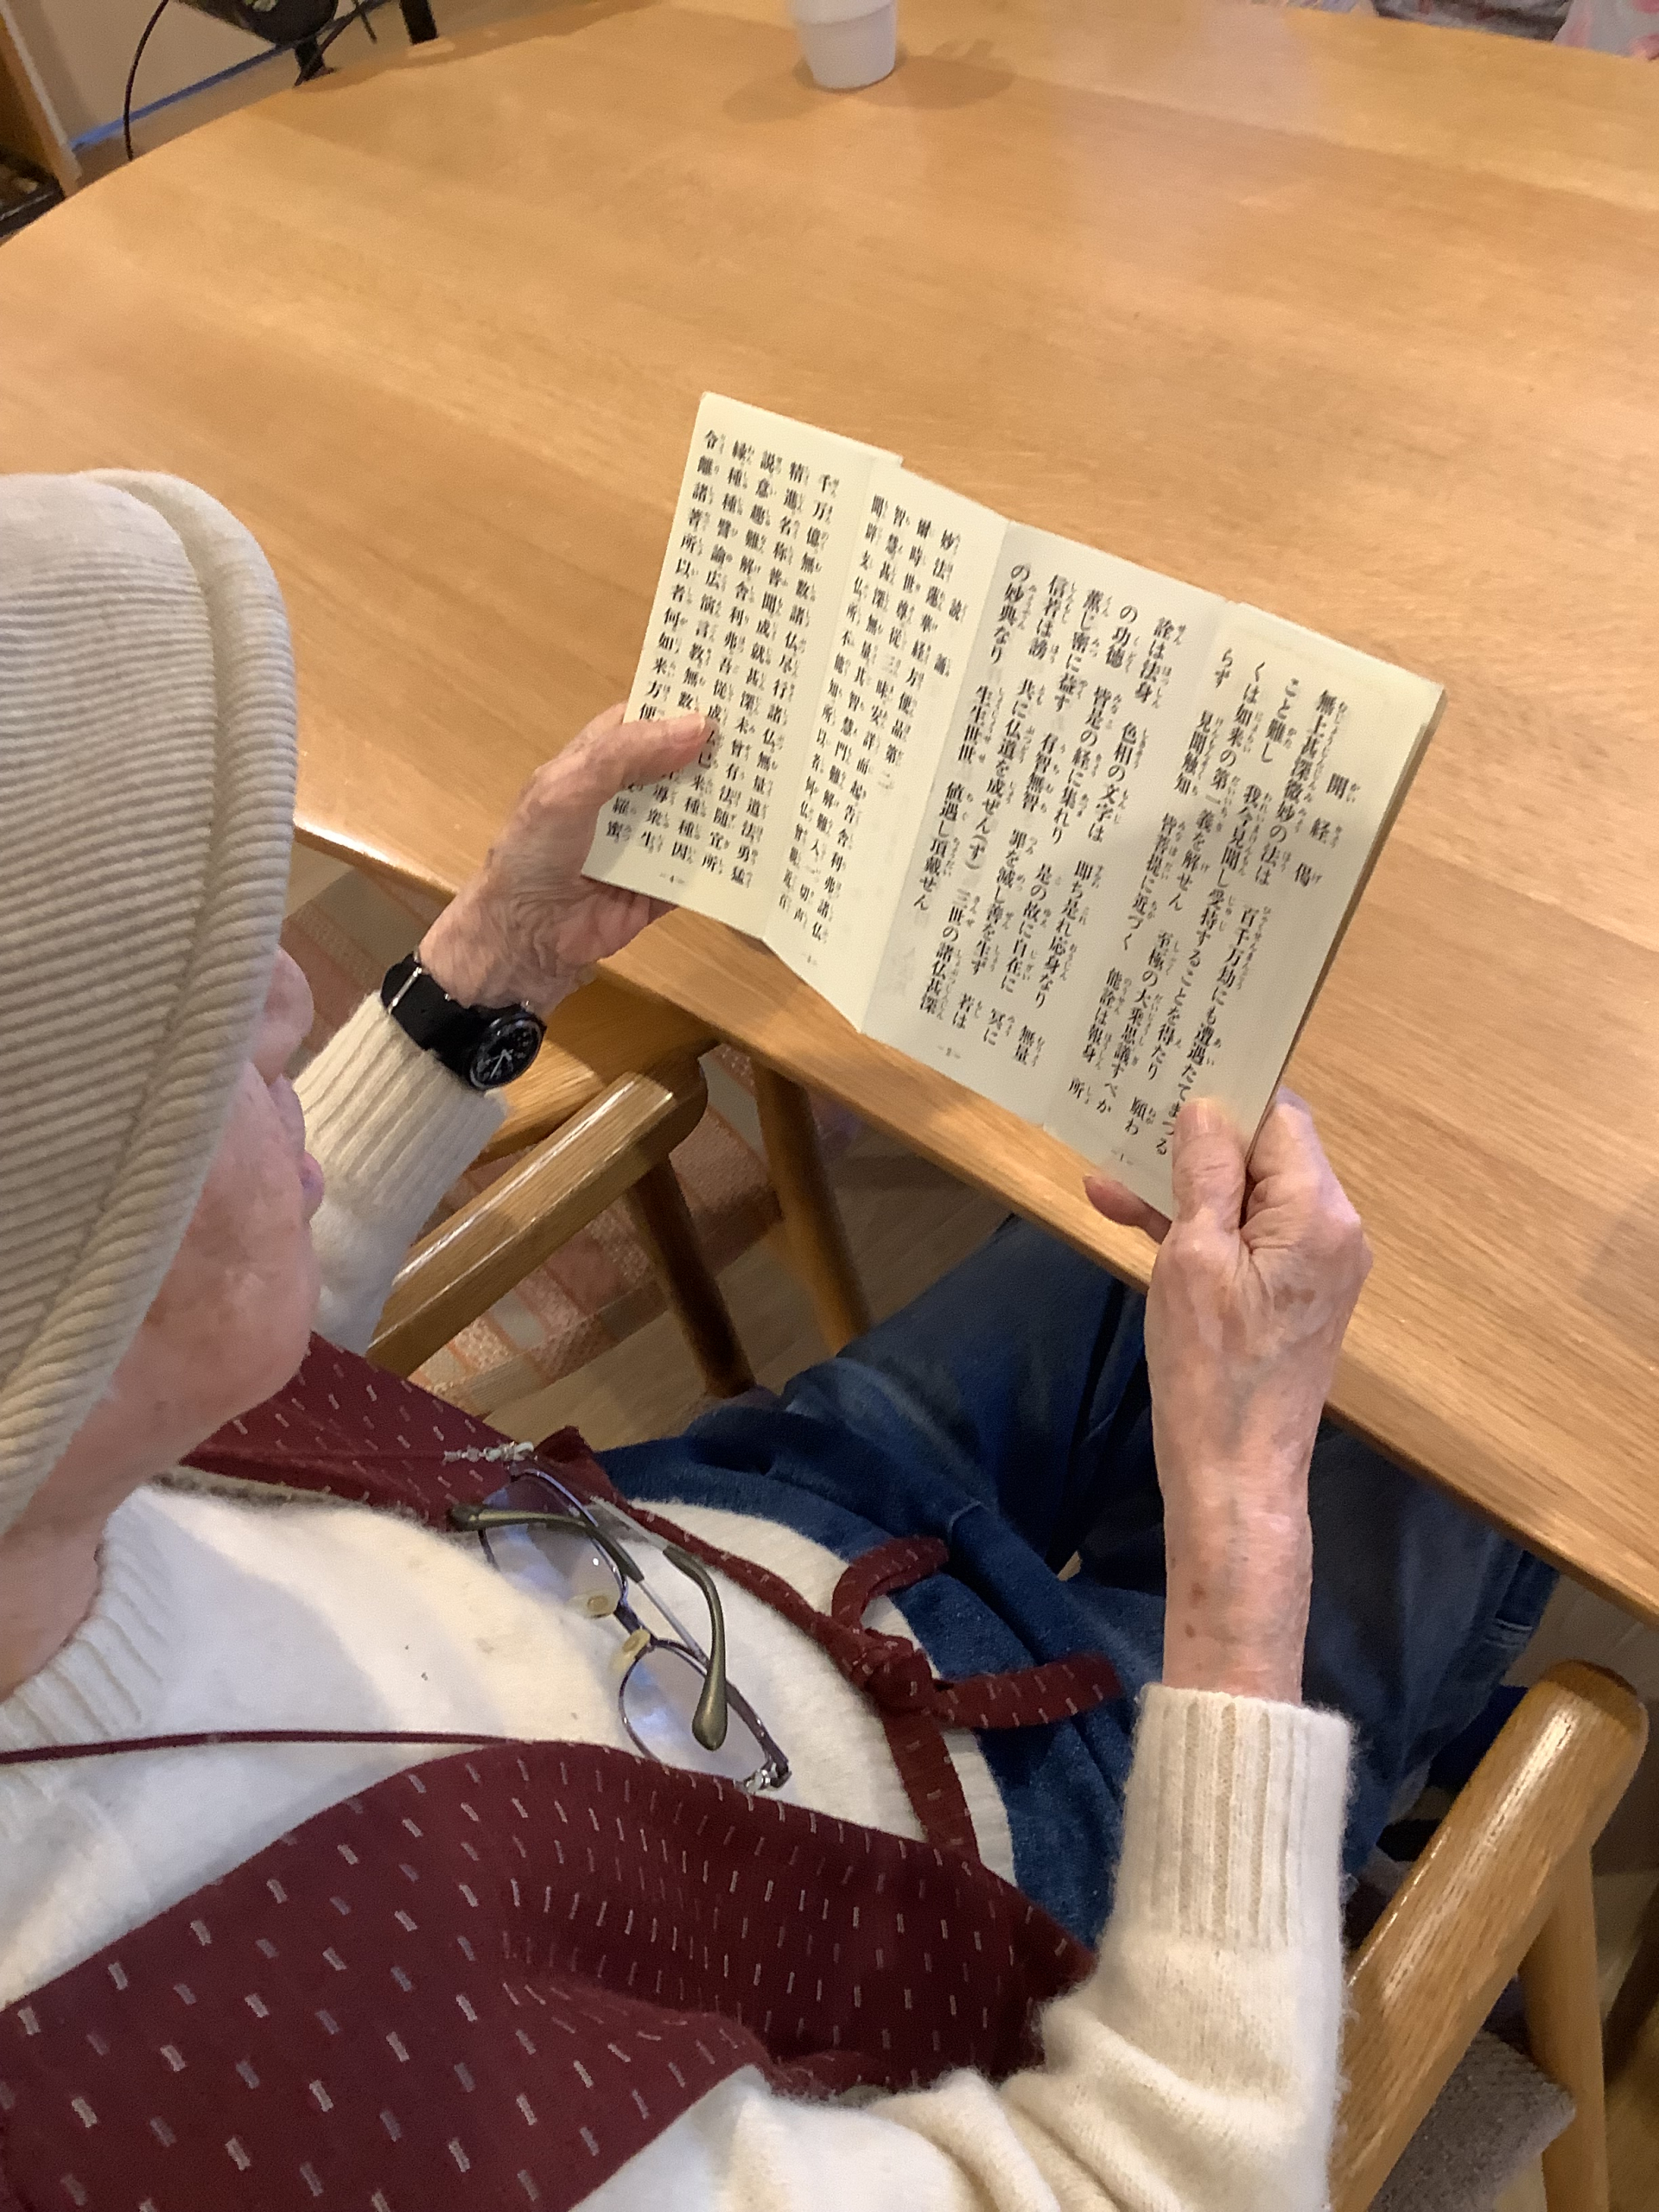 開経偈
無上甚深微妙の法は 百千万劫にも遭遇たてまつる
こと難し 我今見聞し受持することを得たり 願わ
くは如来の第一義を解せん 至極の大乗思議すべか
らず 見聞触知 皆菩提に近づく 能詮は報身 所
詮は法身 色相の文字は 即ち是れ応身なり 無量
の功徳 皆是の経に集れり 是の故に自在に 冥に
薫じ密に益す 有智無智 罪を滅し善を生ず 若は
信若は謗 共に仏道を成ぜん(す) 三世の諸仏甚深
の妙典なり 生生世世 値遇し頂戴せん
読誦
妙法蓮華経方便品第二
爾時世尊従三昧安詳而起告舎利弗諸仏
智慧甚深無量其智慧門難解難入一切声
聞辟支仏所不能知所以者何仏曽親近百
千万億無数諸仏尽行諸仏無量道法勇猛
精進名称普聞成就甚深未曾有法随宜所
説意趣難解舎利弗吾従成仏已来種種因
縁種種譬諭広演言教無数 導衆生
令離諸著所以者何如来方便 羅蜜
-1-
-2-
-3-
-4-